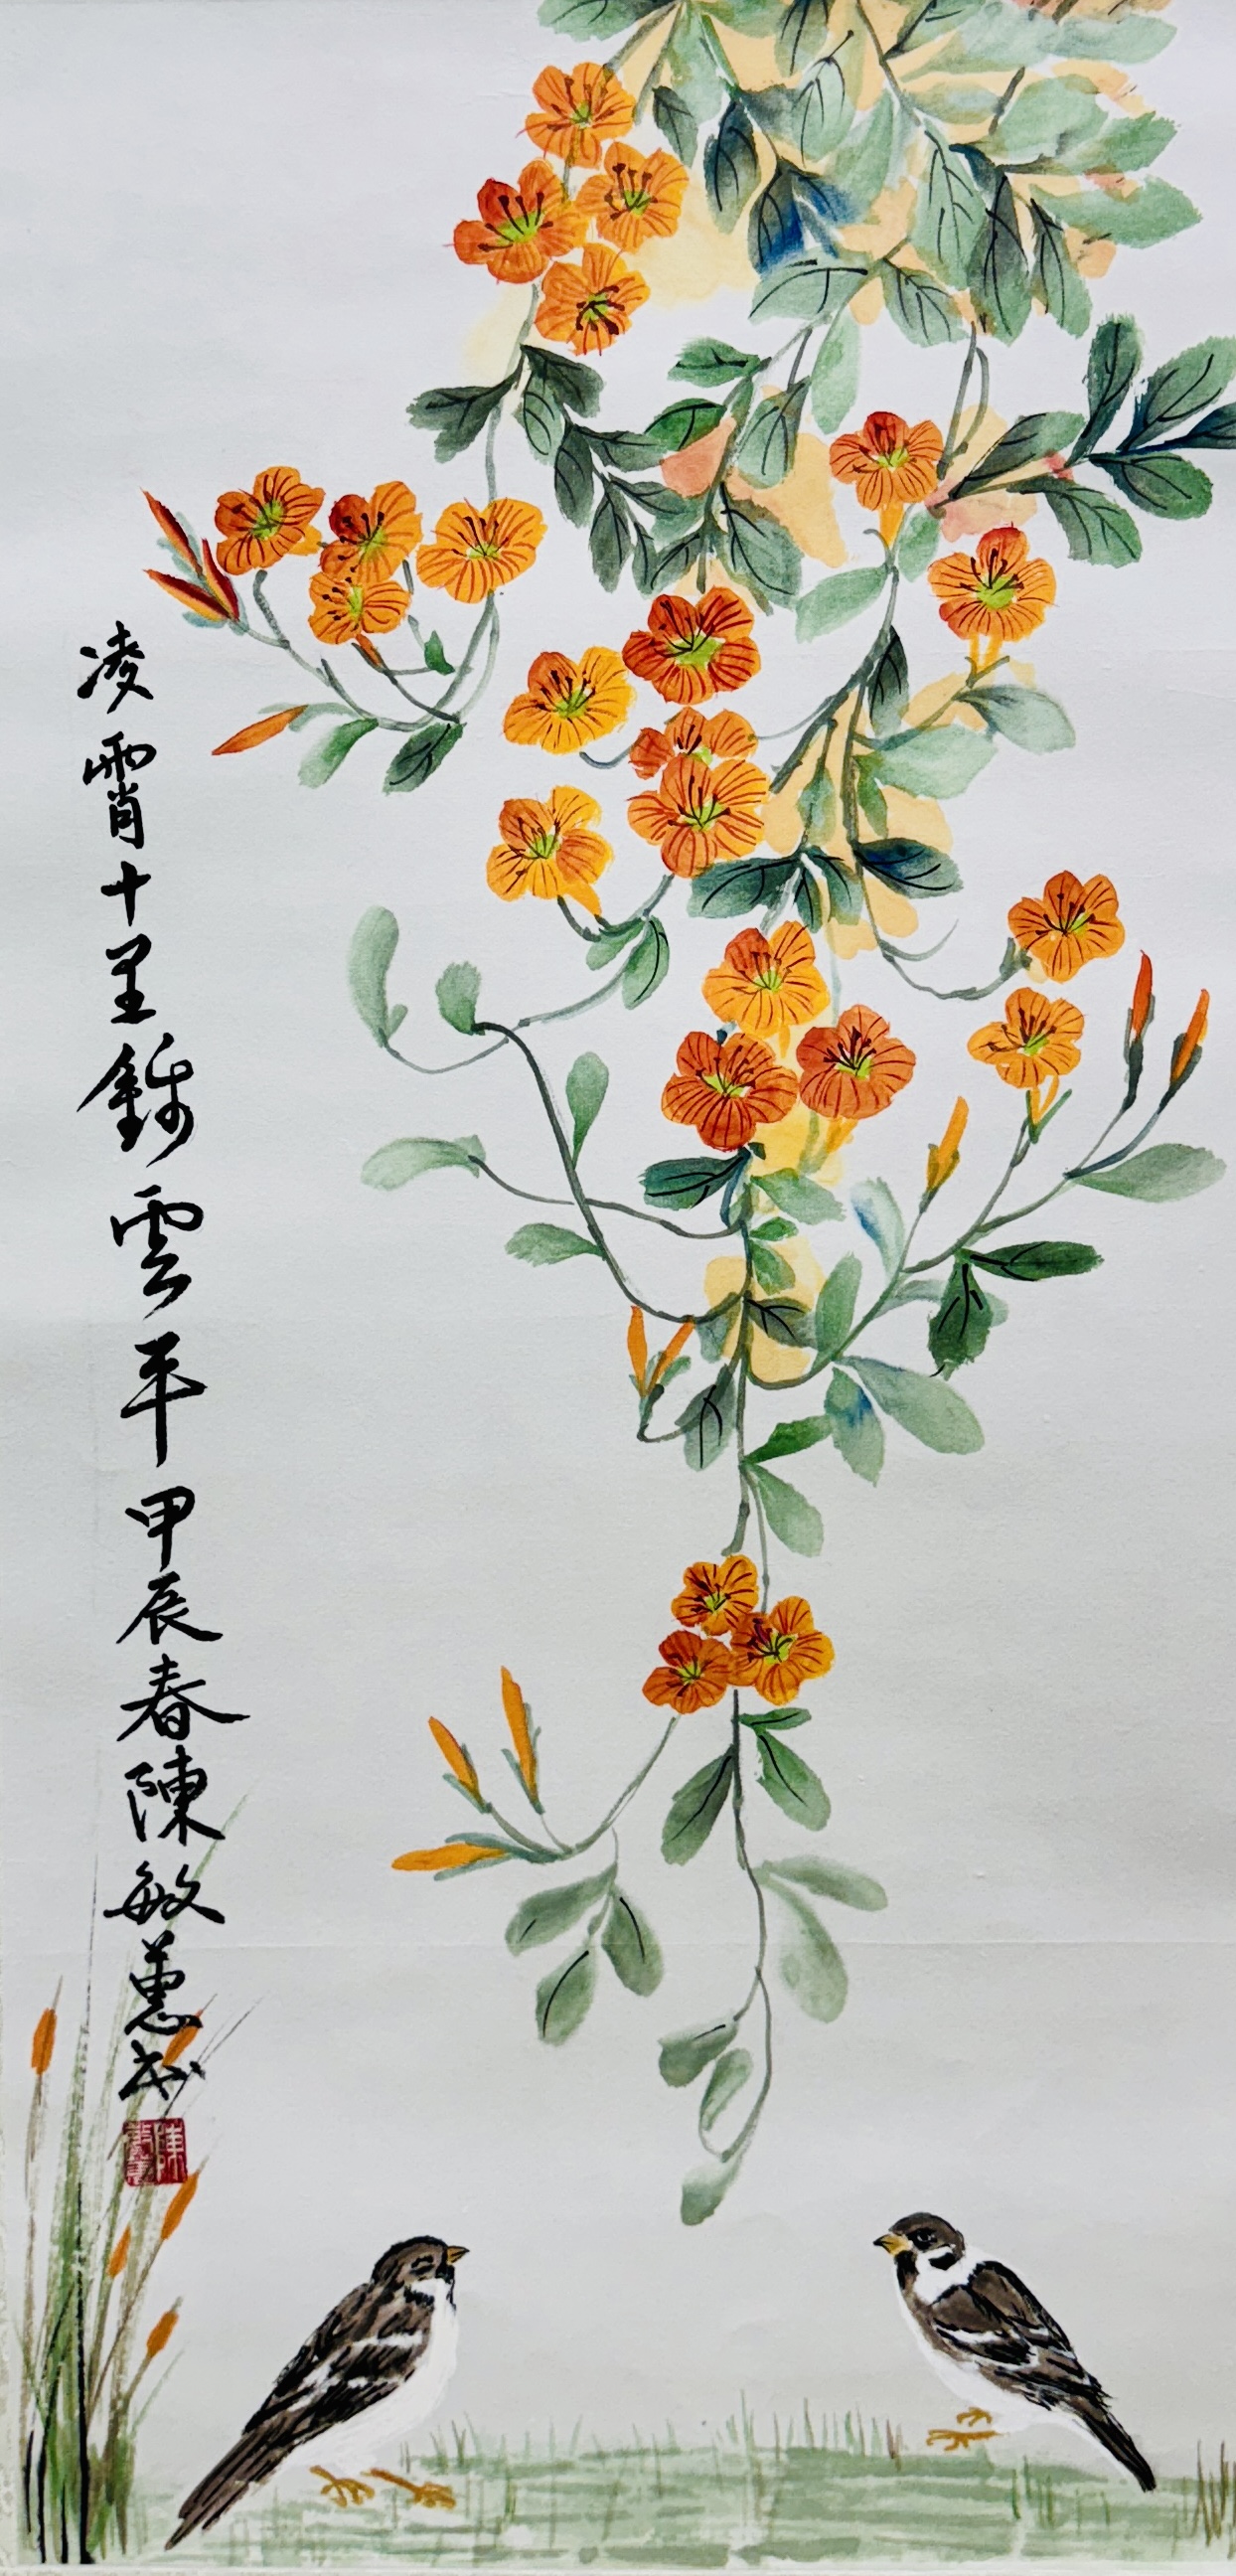 凌霄十里錦雲平甲辰春陳敏蕙